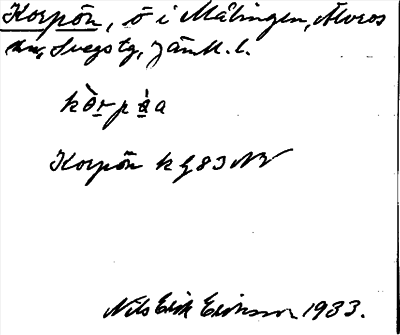 Korpön, ö i Målingen, Älvros
sn, Svegs tg, Jämtl. l.
kòrpø̀a
Korpön k G83 NV
Nils Erik Eriksson 1933.